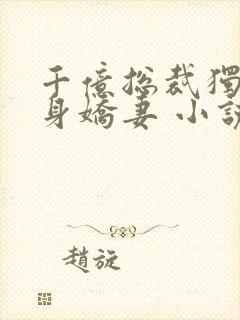 千億总裁獨
身嬌妻 小說
趙旋